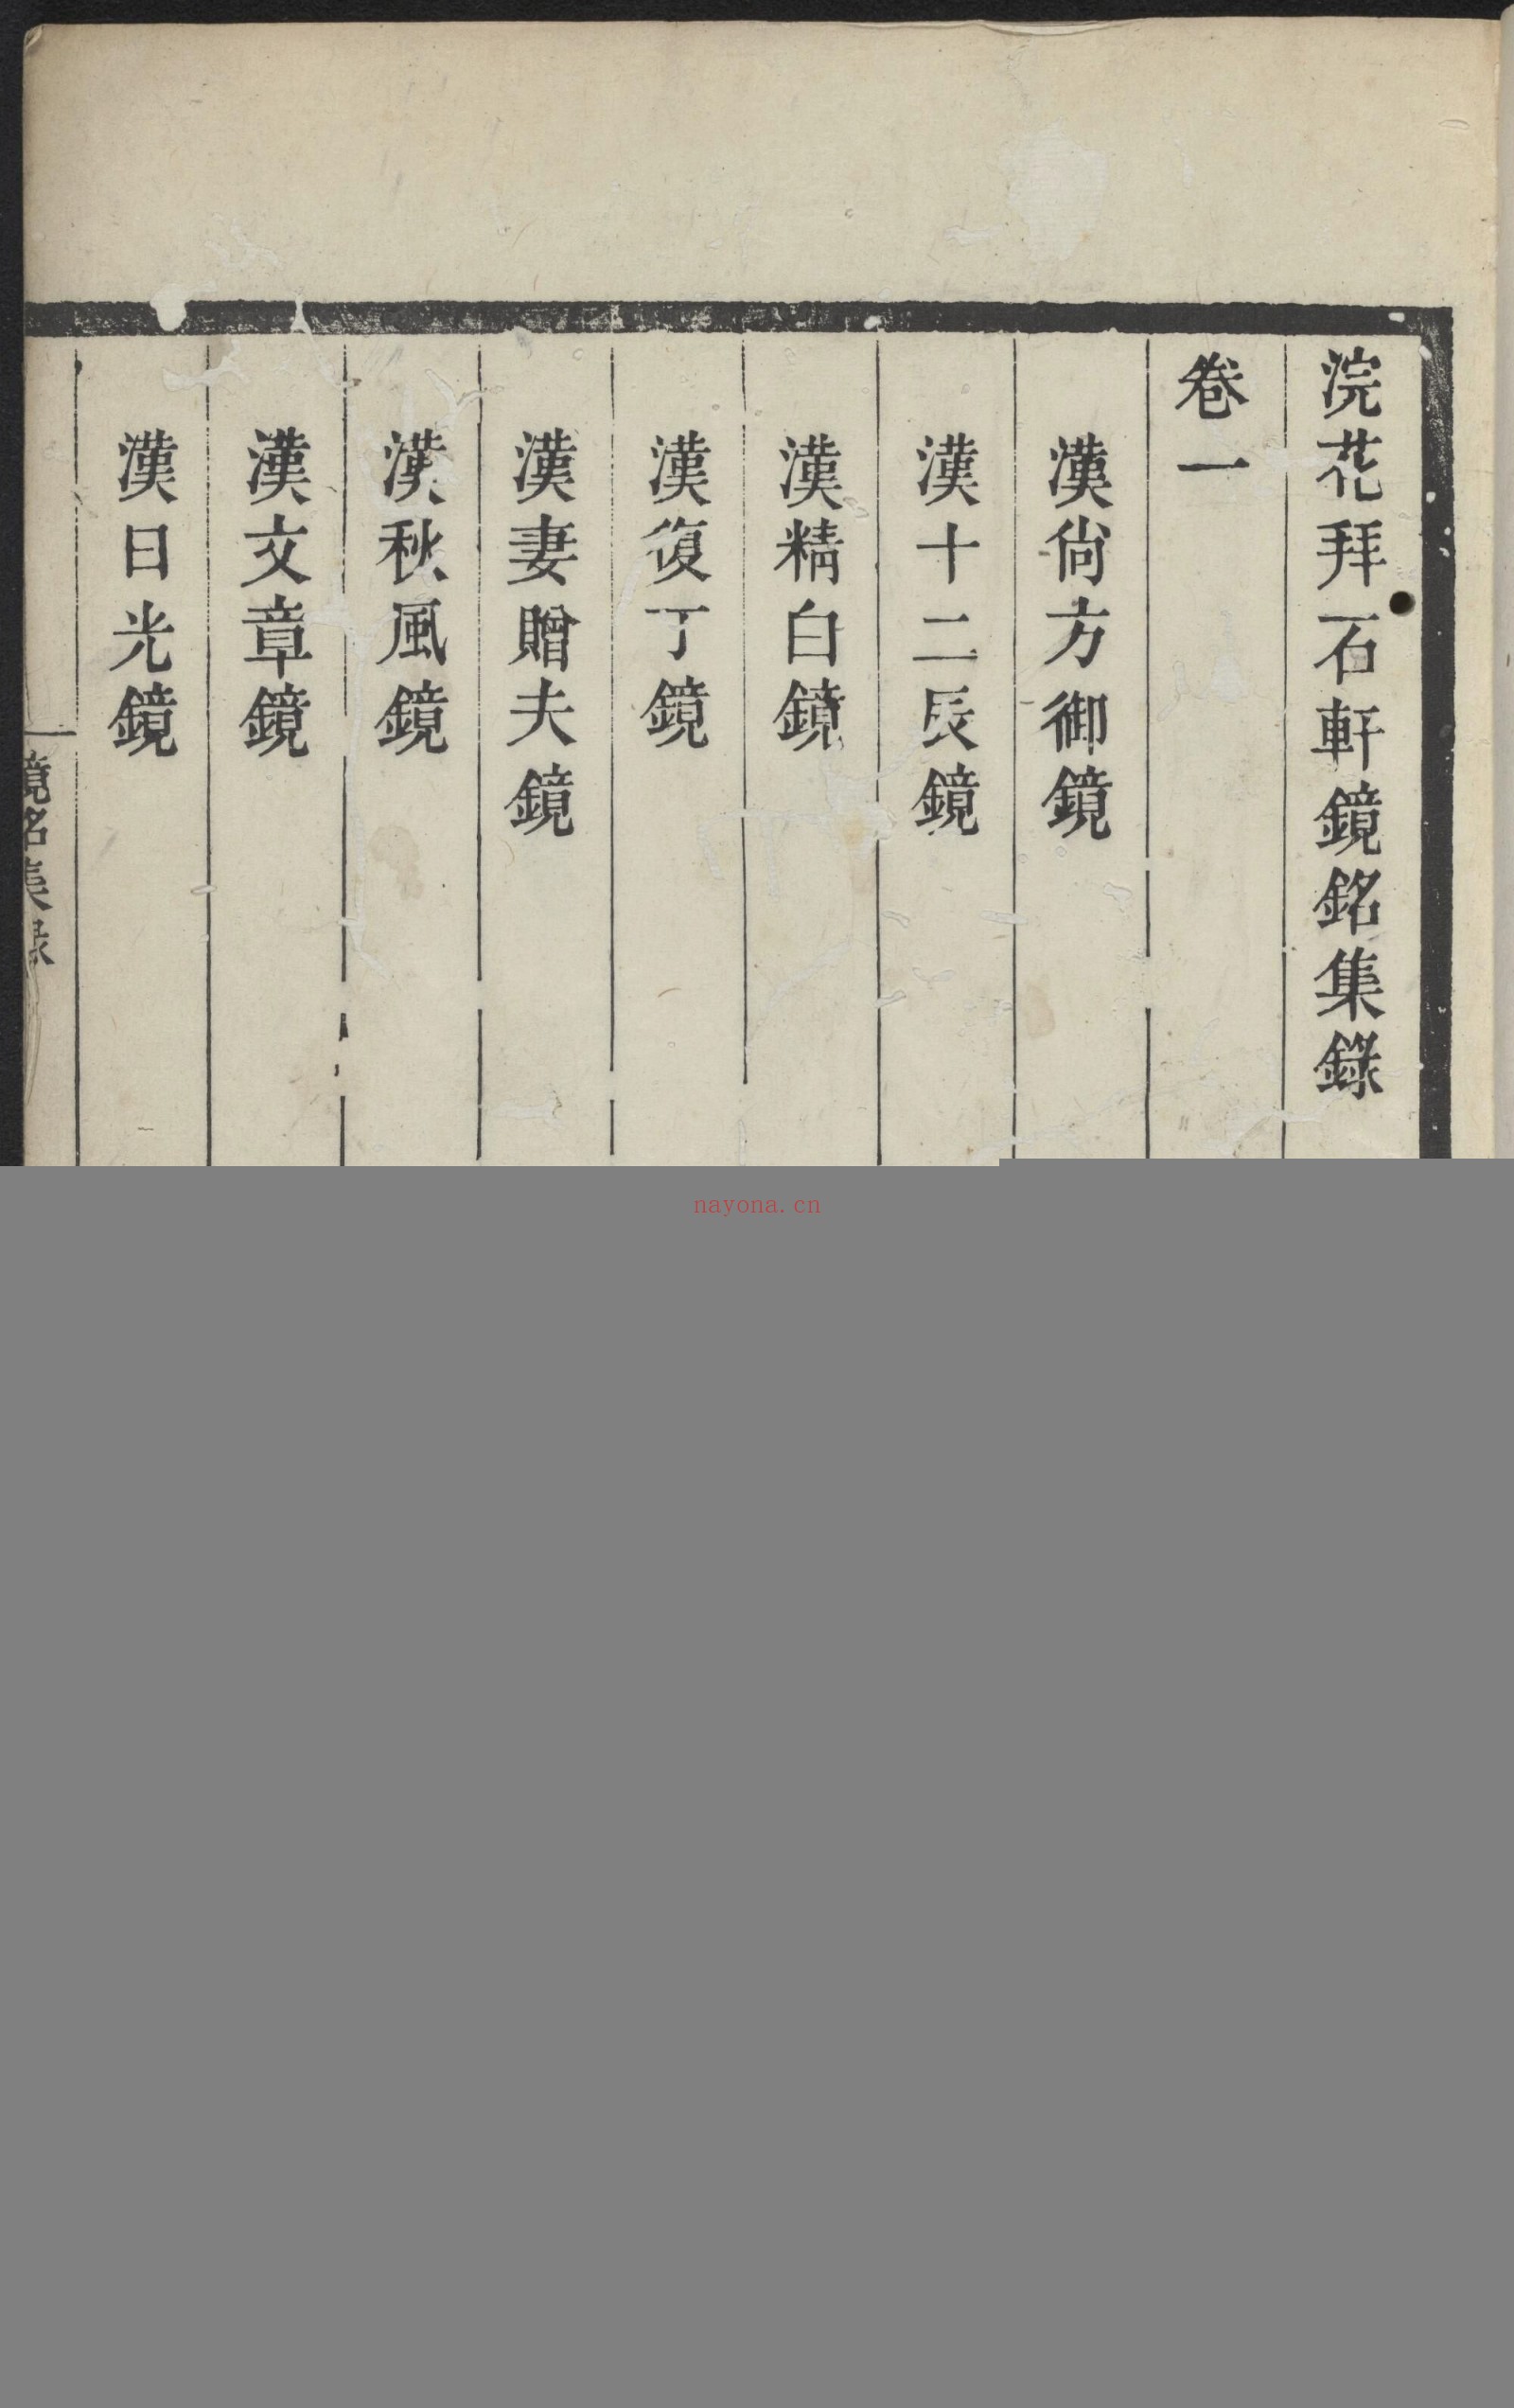 浣花拜石軒鏡銘集錄
卷一
漢尙方御鏡
漢十二辰鏡
漢精白鏡
漢復丁鏡
漢妻贈夫鏡
漢秋風鏡
漢文章鏡
漢日光鏡
鏡銘集錄
nayona.cn